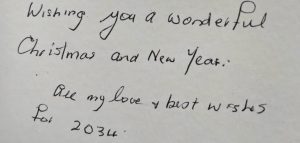 Wishing you a wonderful
Christmas and New Year.
All my love & best wishes
for 2034.